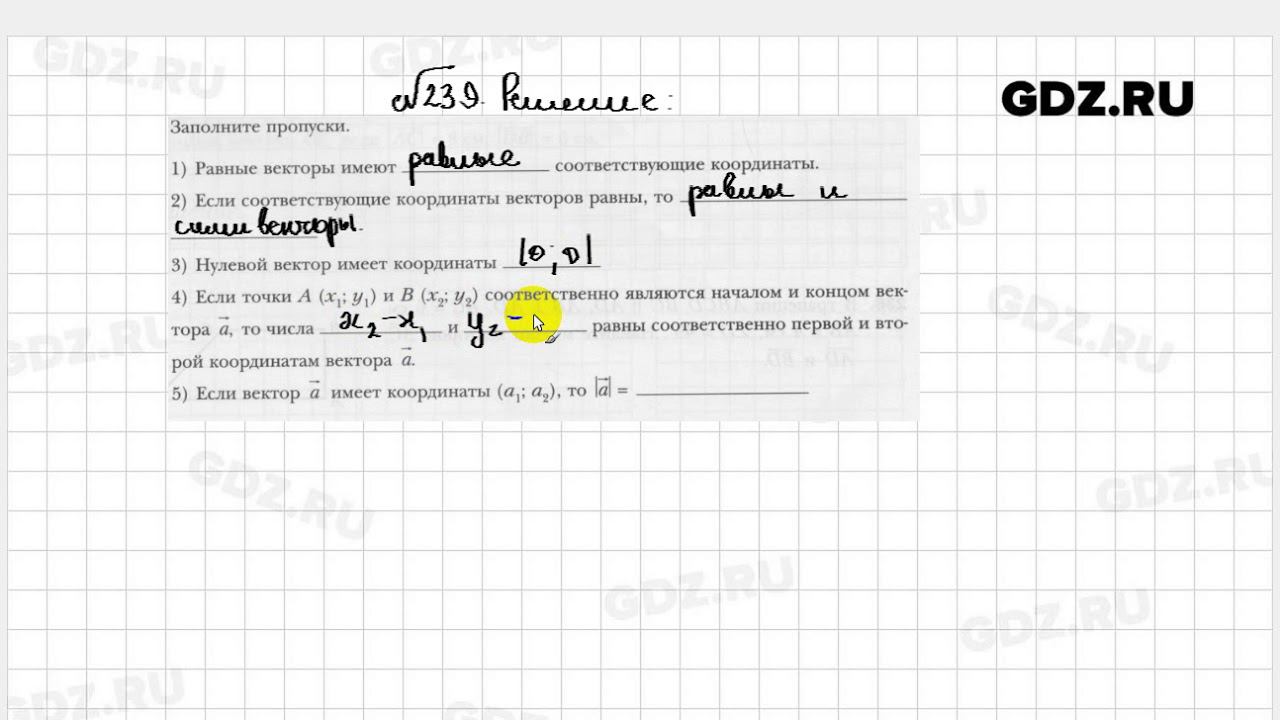 GDZ.RU GDZ.RU
№239. Решение:
GDZ.RU
Заполните пропуски.
1) Равные векторы имеют равные соответствующие координаты.
2) Если соответствующие координаты векторов равны, то равны и
сами векторы.
GDZ.RU
3) Нулевой вектор имеет координаты (0; 0)
4) Если точки A (x₁; y₁) и B (x₂; y₂) соответственно являются началом и концом век-
тора a⃗, то числа x₂ - x₁ и y₂ - равны соответственно первой и вто-
рой координатам вектора a⃗.
GDZ.RU
5) Если вектор a⃗ имеет координаты (a₁; a₂), то |a⃗| =
GDZ.RU GDZ.RU
GDZ.RU GDZ.RU
GDZ.RU GDZ.RU